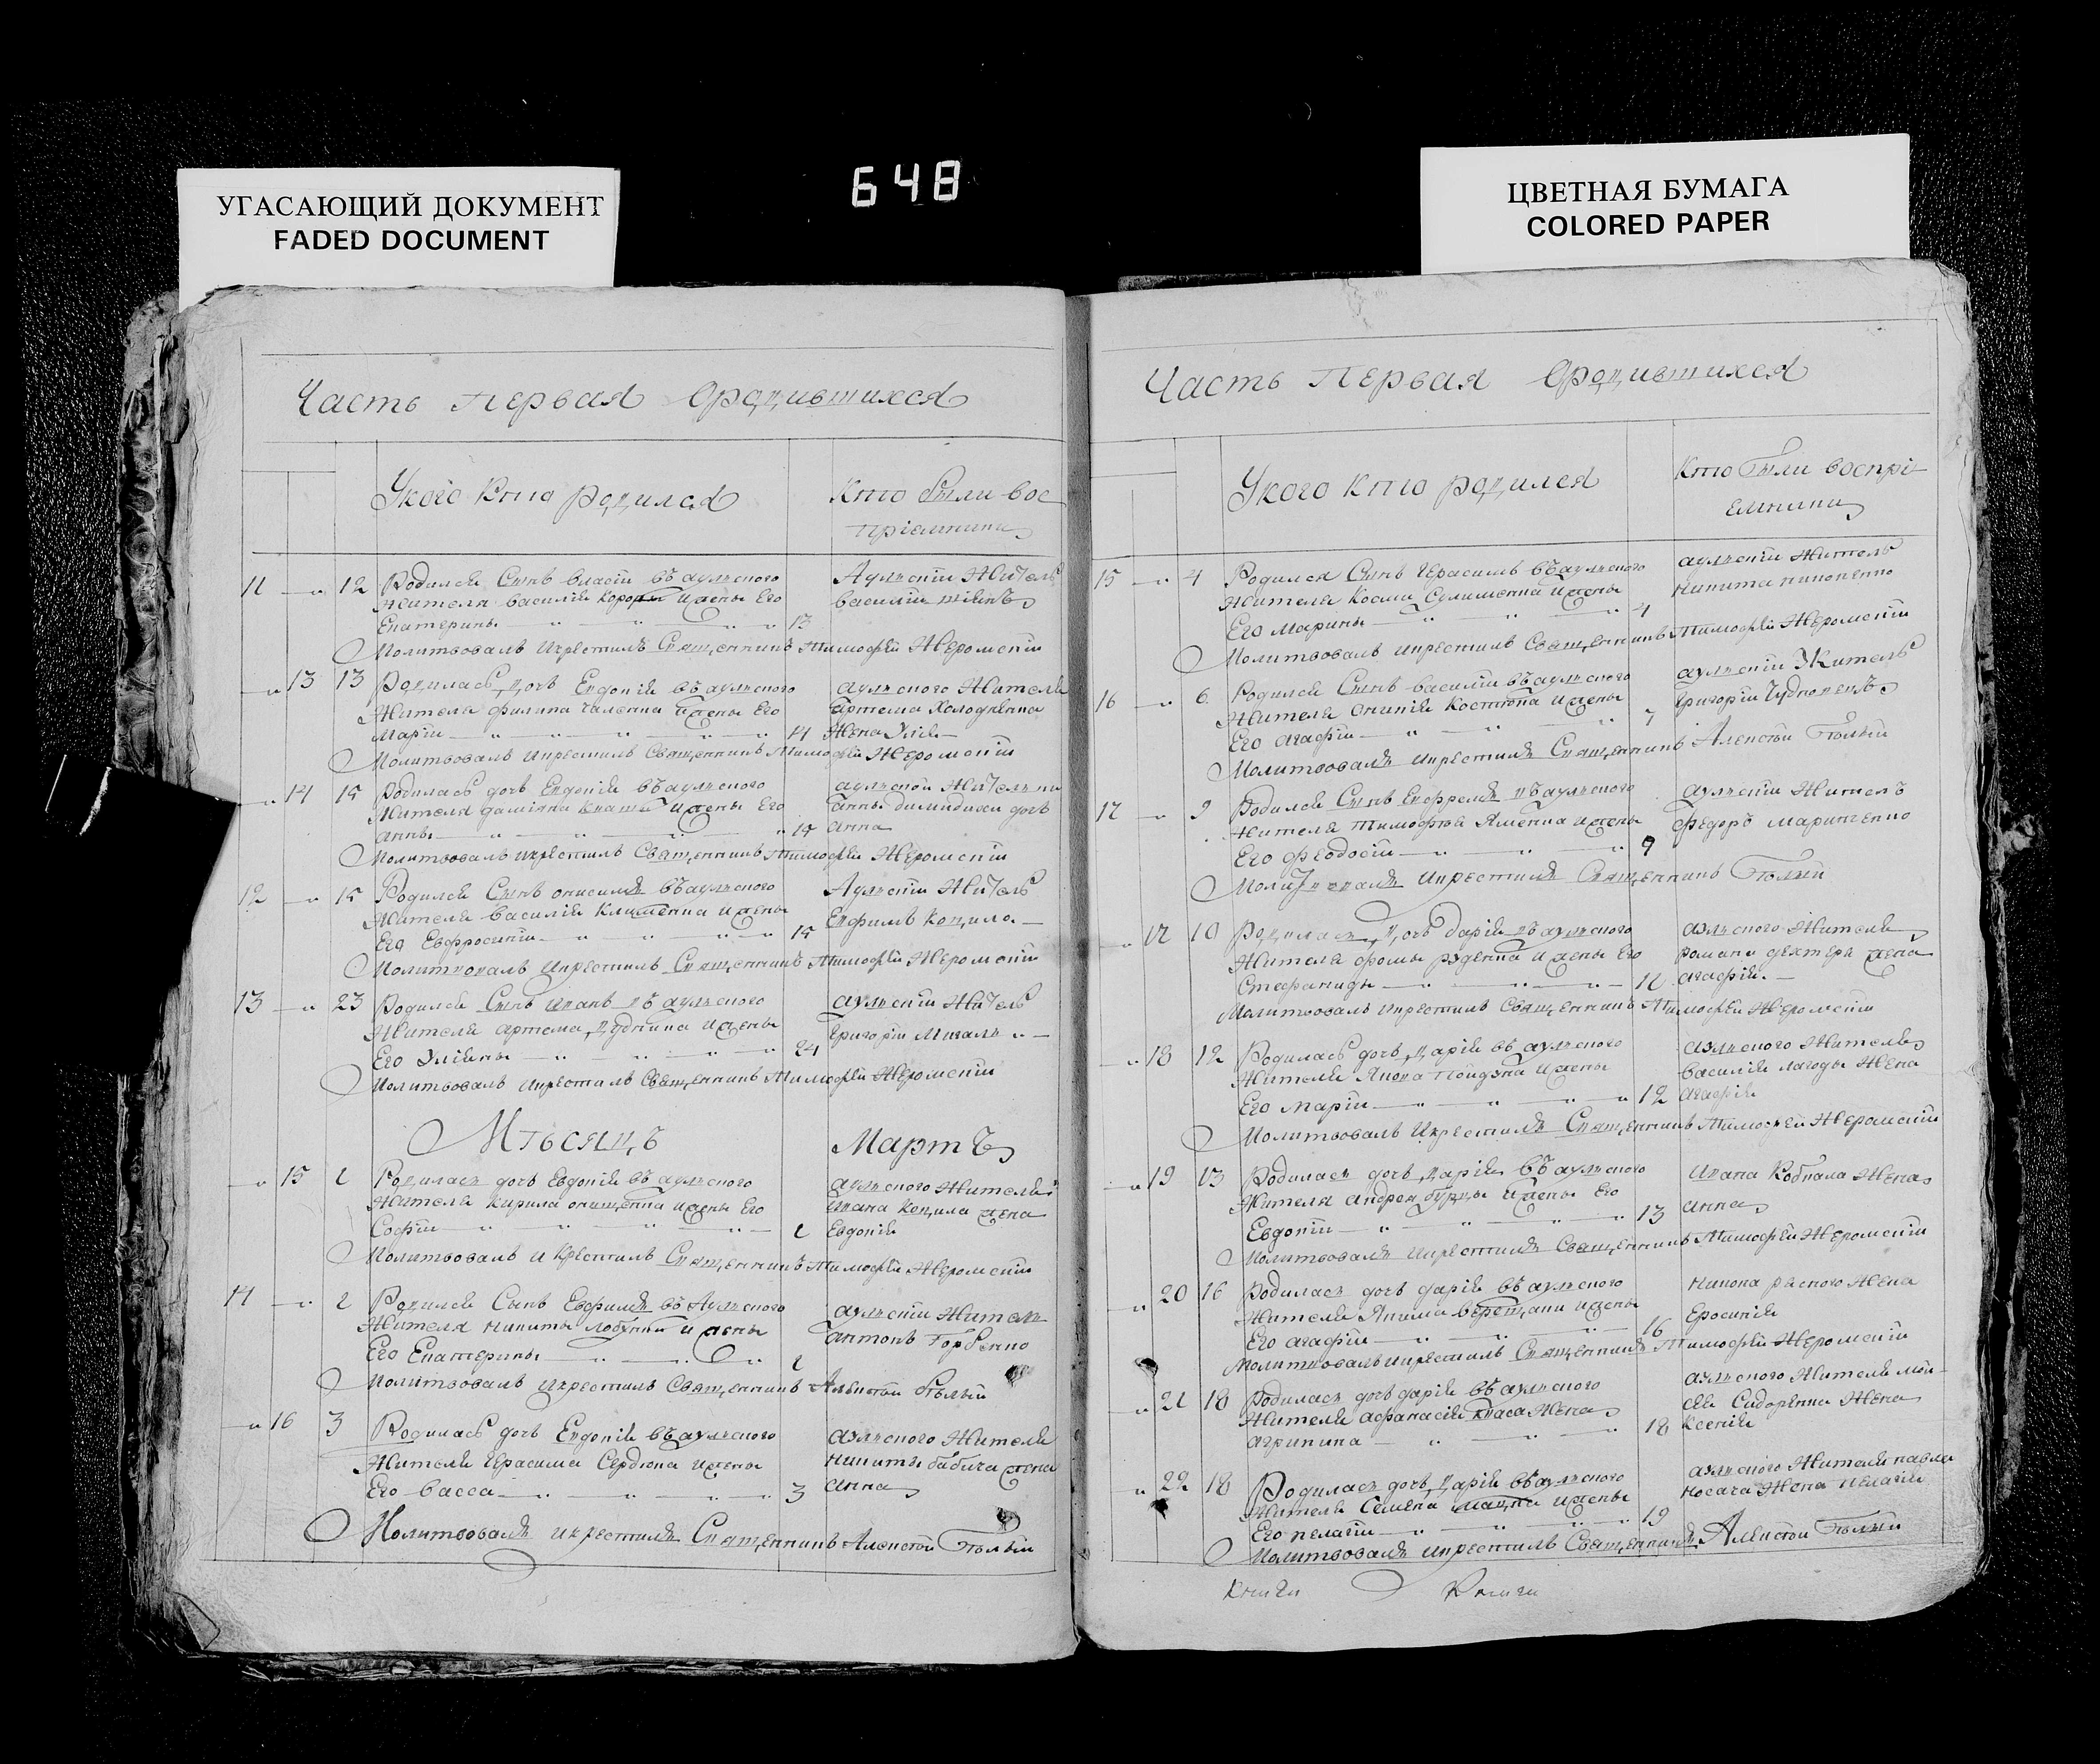 УГАСАЮЩИЙ ДОКУМЕНТ
FADED DOCUMENT
648
ЦВЕТНАЯ БУМАГА
COLORED PAPER
Часть Первая Ородившихся
Укого Кто родился
Кто были вос
пріемники
11 12 Родился Сынъ Власій въ аульского
Жителя Василія Корото ижены Его
Екатерины 13
Аульскій Житель
Василій
Молитвовалъ икрестилъ Священникъ Тимофей Жеромскій
13 13 Родилась дочь Евдокія въ аульского
Жителя Филипа Чаленка ижены Его
Маріи 14
аульского Жителя
Артема Холодненка
Жена
Молитвовалъ икрестилъ Священникъ Тимофей Жеромскій
14 15 Родилась дочь Евдокія въ аульского
Жителя Даміяна ижены Его
анны 15
аульской
анны дочь
анна
Молитвовалъ икрестилъ Священникъ Тимофей Жеромскій
12 15 Родился Сынъ онисимъ въ аульского
Жителя Василія Клименка ижены
Его Евфросиніи 15
Аульскій Житель
Ефимъ Коцила
Молитвовалъ икрестилъ Священникъ Тимофей Жеромскій
13 23 Родился Сынъ иванъ въ аульского
Жителя артема Дудника ижены
Его Уліяны 24
аульскій Житель
Григорій
Молитвовалъ икрестилъ Священникъ Тимофей Жеромскій
Мѣсяцъ Мартъ
15 1 Родилась дочь Евдокія въ аульского
Жителя Кирила онищенка ижены Его
Софіи 1
аульского Жителя
ивана Коцила жена
Евдокія
Молитвовалъ и Крестилъ Священникъ Тимофей Жеромскій
14 2 Родился Сынъ Евфимій въ Аульского
Жителя никиты ижены
Его Екатерины 2
аульскій Житель
антонъ Горбенко
Молитвовалъ икрестилъ Священникъ Алексѣй Бѣлый
16 3 Родилась дочь Евдокія въ аульского
Жителя Герасима Сердюка ижены
Его Васса 3
аульского Жителя
никиты бабича жена
анна
Молитвовалъ икрестилъ Священникъ Алексѣй Бѣлый
Часть Первая Ородившихся
Укого кто родился
Кто были воспрі
емники
15 4 Родился Сынъ Герасимъ въ аульского
Жителя Космы Сулименка ижены
Его Марины 4
аульскій Житель
никита
Молитвовалъ икрестилъ Священникъ Тимофей Жеромскій
16 6 Родился Сынъ Василій въ аульского
Жителя Костюка ижены
Его агафіи 7
аульскій Житель
Григорій Чудновецъ
Молитвовалъ икрестилъ Священникъ Алексѣй Бѣлый
17 9 Родился Сынъ Ефремъ въ аульского
Жителя тимофѣя ижены
Его феодосіи 9
аульскій Житель
федоръ Маринченко
Молитвовалъ икрестилъ Священникъ Бѣлый
17 10 Родилась дочь дарія въ аульского
Жителя фомы руденка ижены Его
Стефаниды 12
аульского Жителя
романа дехтяря жена
агафія
Молитвовалъ икрестилъ Священникъ Тимофей Жеромскій
18 12 Родилась дочь дарія въ аульского
Жителя Якова ижены
Его Маріи 12
аульского Жителя
василія лагоды Жена
агафія
Молитвовалъ икрестилъ Священникъ Тимофей Жеромскій
19 13 Родилась дочь дарія въ аульского
Жителя андрея ижены Его
Евдокіи 13
ивана Кобзала Жена
анна
Молитвовалъ икрестилъ Священникъ Тимофей Жеромскій
20 16 Родилась дочь дарія въ аульского
Жителя Якима верещаки ижены
Его агафіи 16
никона Жена
Еросинія
Молитвовалъ икрестилъ Священникъ Тимофей Жеромскій
21 18 Родилась дочь дарія въ аульского
Жителя афанасія Жена
агрипина 18
аульского Жителя мой
сѣя Сидоренка Жена
Ксенія
22 18 Родилась дочь дарія въ аульского
Жителя Семена ижены
Его пелагіи 19
аульского Жителя павла
носача Жена пелагія
Молитвовалъ икрестилъ Священникъ Алексѣй Бѣлый
Книги Книги